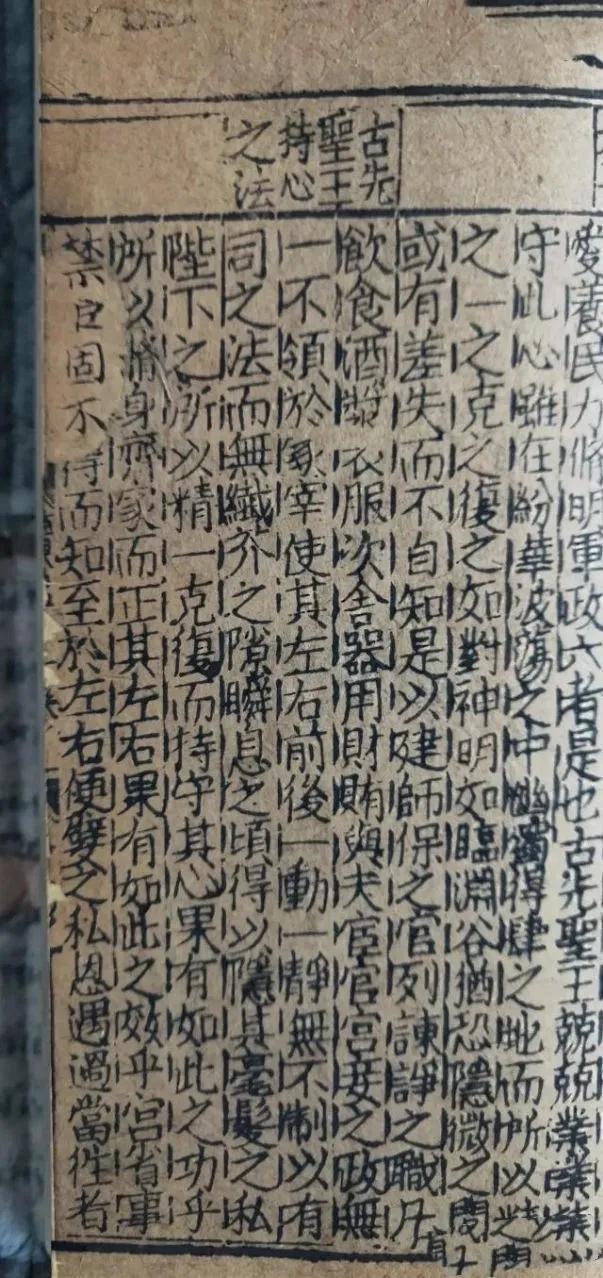 古先
聖王
持心
之法
愛養民力脩明軍政六者是也古先聖王兢兢業業
守此心雖在紛華波蕩之中幽獨得肆之地而所以精
之一之克之復之如對神明如臨淵谷猶恐隱微之間
或有差失而不自知是以建師保之官列諫諍之職凡
飲食酒漿衣服次舍器用財賄與夫宦官宮妾之政無
一不領於冢宰使其左右前後一動一靜無不制以有
司之法而無纖介之隙瞬息之頃得以隱其毫髮之私
陛下之所以精一克復而持守其心果有如此之功乎
所以脩身齊家而正其左右果有如此之效乎宮省事
禁臣固不得而知至於左右便嬖之私恩遇過當往者